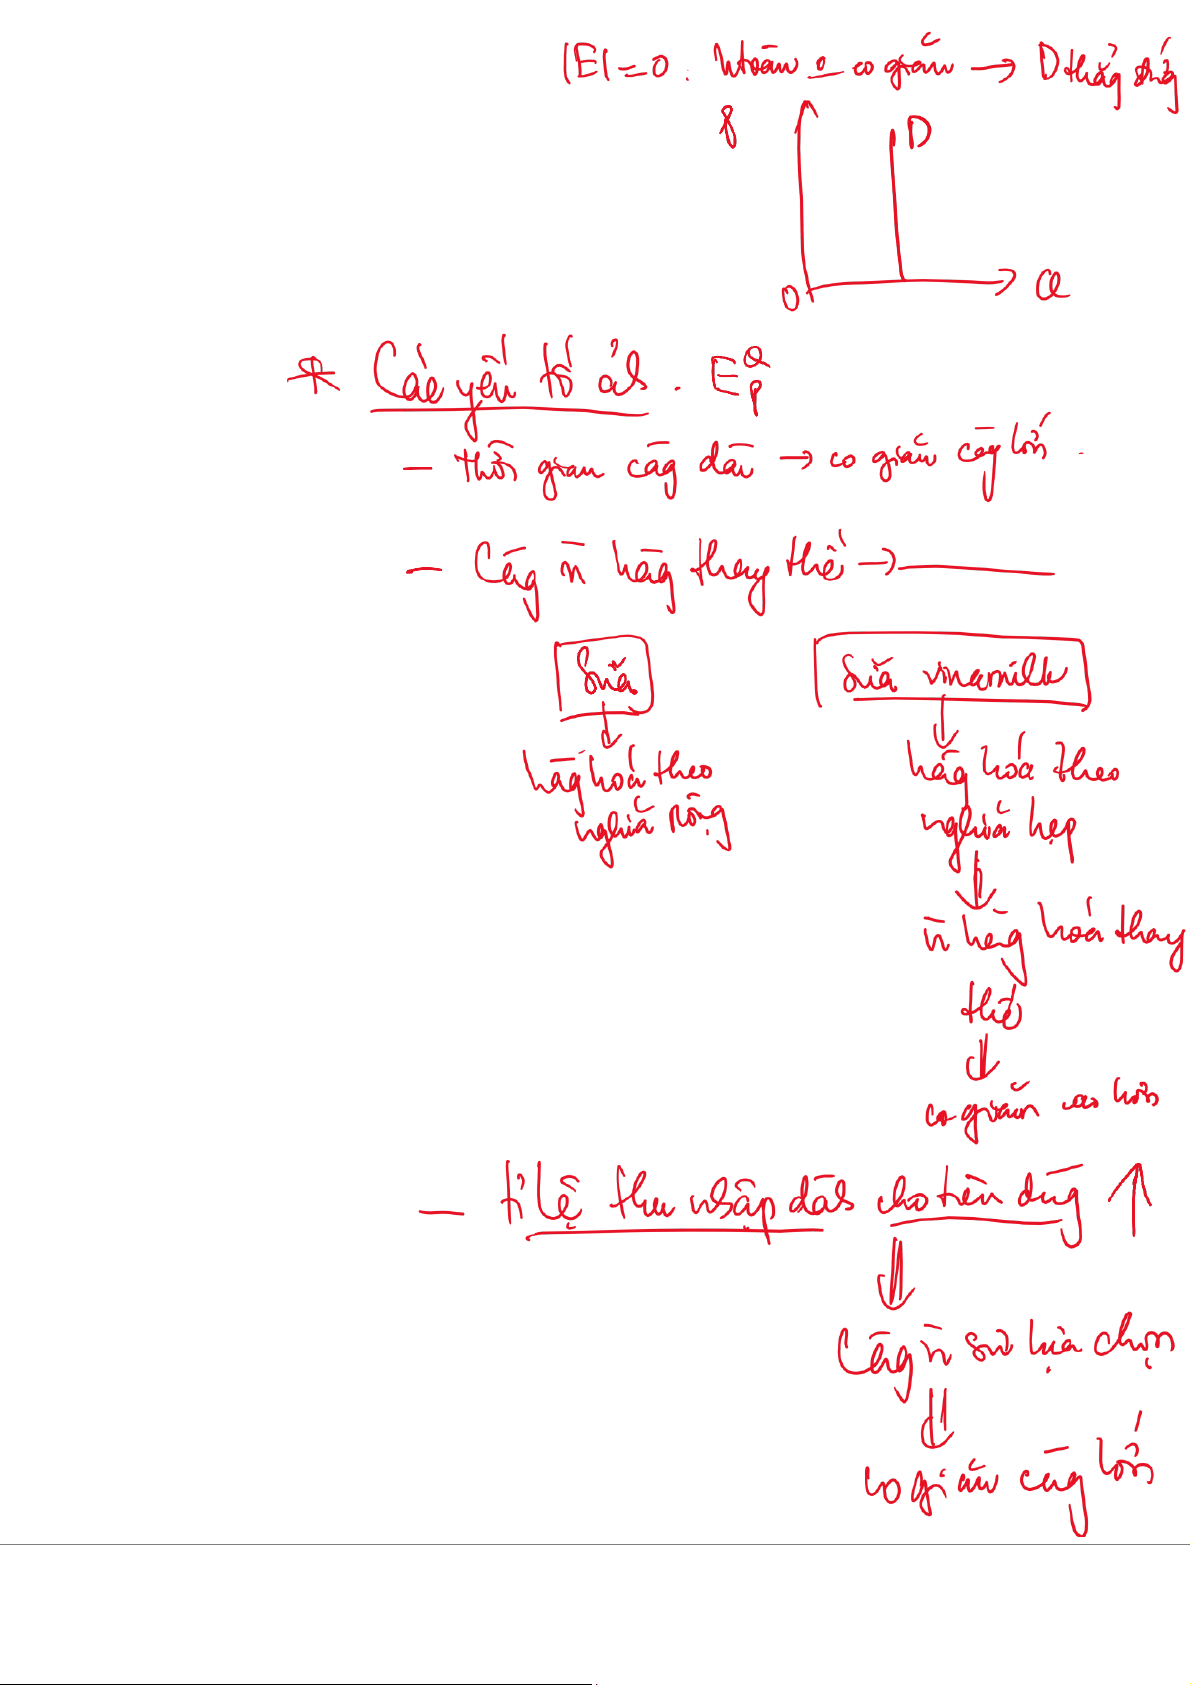 |E| = 0. htoàn o co giãn → D thẳg đứg
P
D
O
Q
* Các yếu tố ảh. E Q P
- thời gian càg dài → co giãn càg lớn.
- Càg n̄ hàg thay thế →
Sữa
Sữa vinamilk
hàg hoá theo
nghĩa rộng
hàg hoá theo
nghĩa hẹp
n̄ hàg hoá thay
thế
co giãn cao hơn
- tỉ lệ thu nhập dàh cho tiêu dùg ↑
Càg n̄ sự lựa chọn
co giãn càg lớn